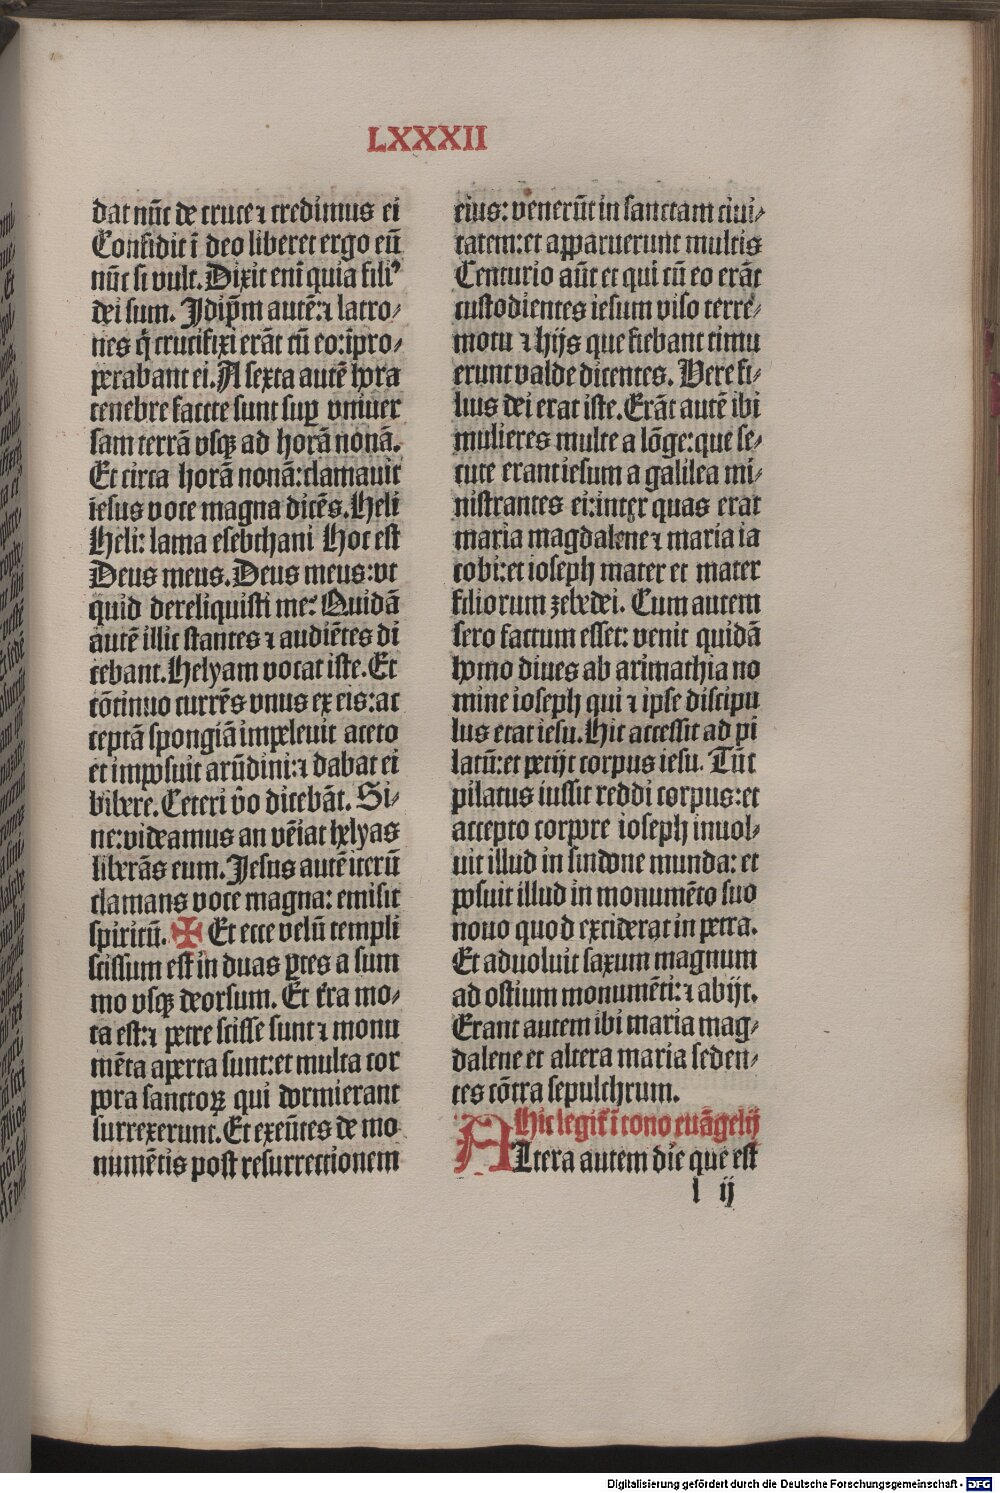 LXXXII
dat nūc de cruce ⁊ credimus ei
Confidit ī deo liberet ergo eū
nūc si vult. Dixit enī quia filiꝰ
dei sum. Idip̄m autē:⁊ latro⸗
nes q̄ crucifixi erāt cū eo:īpro⸗
perabant ei. A sexta autē hora
tenebre facte sunt suꝑ vniuer
sam terrā vsqꝫ ad horā nonā.
Et circa horā nonā:clamauit
iesus voce magna dicēs. Heli
Heli: lama esebthani Hoc est
Deus meus. Deus meus:vt
quid dereliquisti me? Quidā
autē illic stantes ⁊ audiētes di
cebant. Helyam vocat iste. Et
cōtinuo currēs vnus ex eis:ac
ceptā spongiā impleuit aceto
et imposuit arūdini:⁊ dabat ei
bibere. Ceteri v̄o dicebāt. Si⸗
ne:videamus an vēiat helyas
liberās eum. Jesus autē iterū
clamans voce magna: emisit
spiritū. ✠ Et ecce velū templi
scissum est in duas ꝑtes a sum
mo vsqꝫ deorsum. Et t̄ra mo⸗
ta est:⁊ petre scisse sunt ⁊ monu
mēta aperta sunt:et multa cor
pora sanctoꝝ qui dormierant
surrexerunt. Et exeūtes de mo
numētis post resurrectionem
eius: venerūt in sanctam ciui⸗
tatem:et apparuerunt multis
Centurio aūt et qui cū eo erāt
custodientes iesum viso terre⸗
motu ⁊ hijs que fiebant timu
erunt valde dicentes. Vere fi⸗
lius dei erat iste. Erāt autē ibi
mulieres multe a lōge:que se⸗
cute erant iesum a galilea mi⸗
nistrantes ei:inter quas erat
maria magdalene ⁊ maria ia
cobi:et ioseph mater et mater
filiorum zebedei. Cum autem
sero factum esset: venit quidā
homo diues ab arimathia no
mine ioseph qui ⁊ ipse discipu
lus erat iesu. Hic accessit ad pi
latū:et petijt corpus iesu. Tūc
pilatus iussit reddi corpus:et
accepto corpore ioseph inuol⸗
uit illud in sindone munda: et
posuit illud in monumēto suo
nouo quod exciderat in petra.
Et aduoluit saxum magnum
ad ostium monumēti:⁊ abijt.
Erant autem ibi maria mag⸗
dalene et altera maria seden⸗
tes cōtra sepulchrum.
Hic legit̄ ī tono euāgelij
ALtera autem die que est
l ij
Digitalisierung gefördert durch die Deutsche Forschungsgemeinschaft - DFG